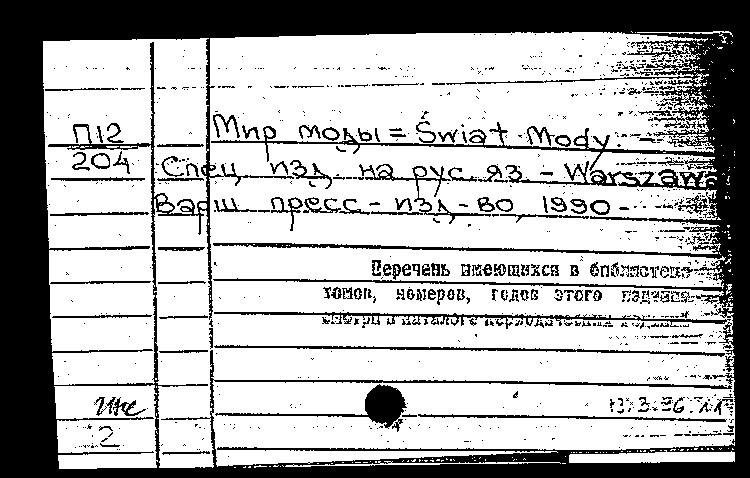 П12
204
Мир моды = Świat Mody. -
Спец. изд. на рус. яз. - Warszawa
Варш. пресс.-изд-во, 1990-
Перечень имеющихся в библиотеке
томов, номеров, годов этого издания
смотри в каталоге периодических изданий
2